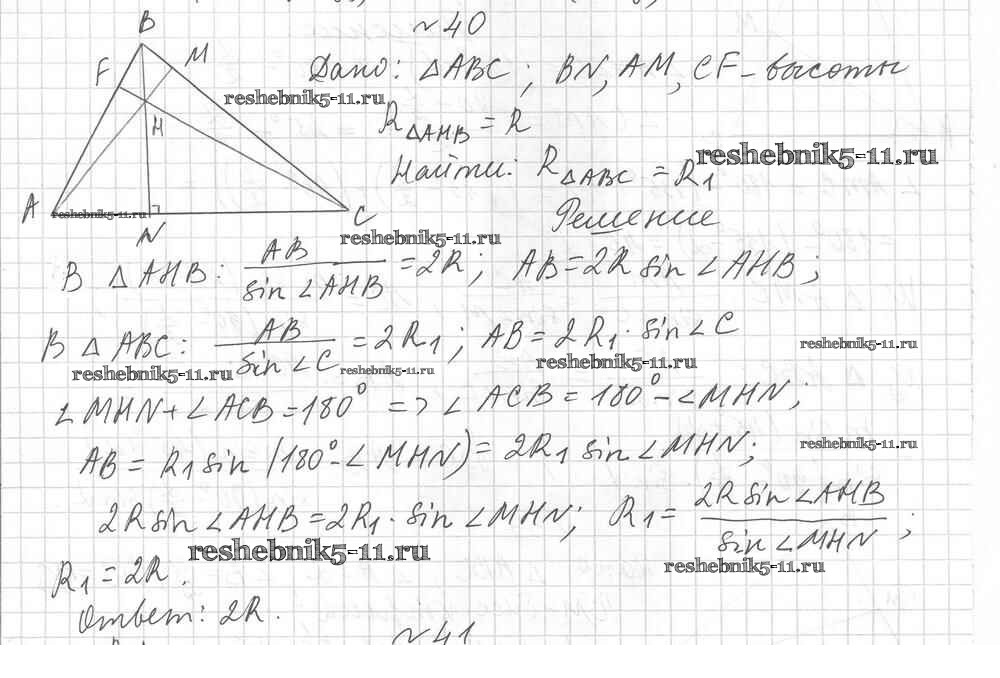 №40
B
F
M
H
A
C
N
Дано: △ABC; BN, AM, CF – высоты
reshebnik5-11.ru
R△AHB = R
Найти: R△ABC = R₁
reshebnik5-11.ru
reshebnik5-11.ru
Решение
reshebnik5-11.ru
В △AHB: AB / sin∠AHB = 2R; AB = 2R sin∠AHB;
В △ABC: AB / sin∠C = 2R₁; AB = 2R₁ · sin∠C
reshebnik5-11.ru
reshebnik5-11.ru
reshebnik5-11.ru
reshebnik5-11.ru
∠MHN + ∠ACB = 180° => ∠ACB = 180° – ∠MHN;
AB = R₁ sin(180° – ∠MHN) = 2R₁ sin∠MHN;
reshebnik5-11.ru
2R sin∠AHB = 2R₁ · sin∠MHN; R₁ = 2R sin∠AHB / sin∠MHN;
reshebnik5-11.ru
reshebnik5-11.ru
R₁ = 2R.
Ответ: 2R.
№41